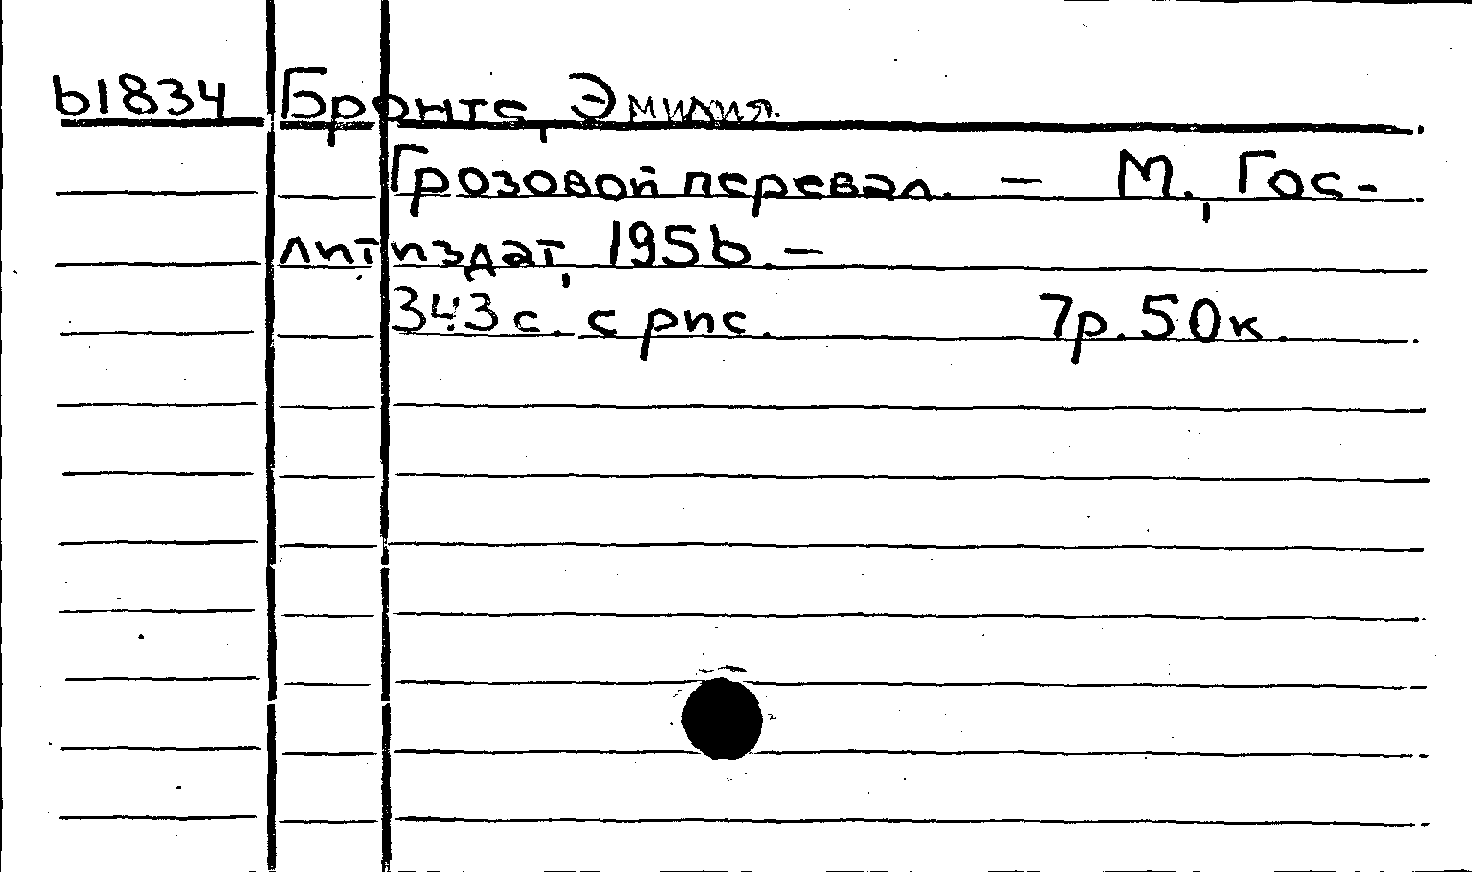 61834 Бронте, Эмилия.
Грозовой перевал. – М., Гос-
литиздат, 1956. –
343 с. с рис. 7р. 50к.